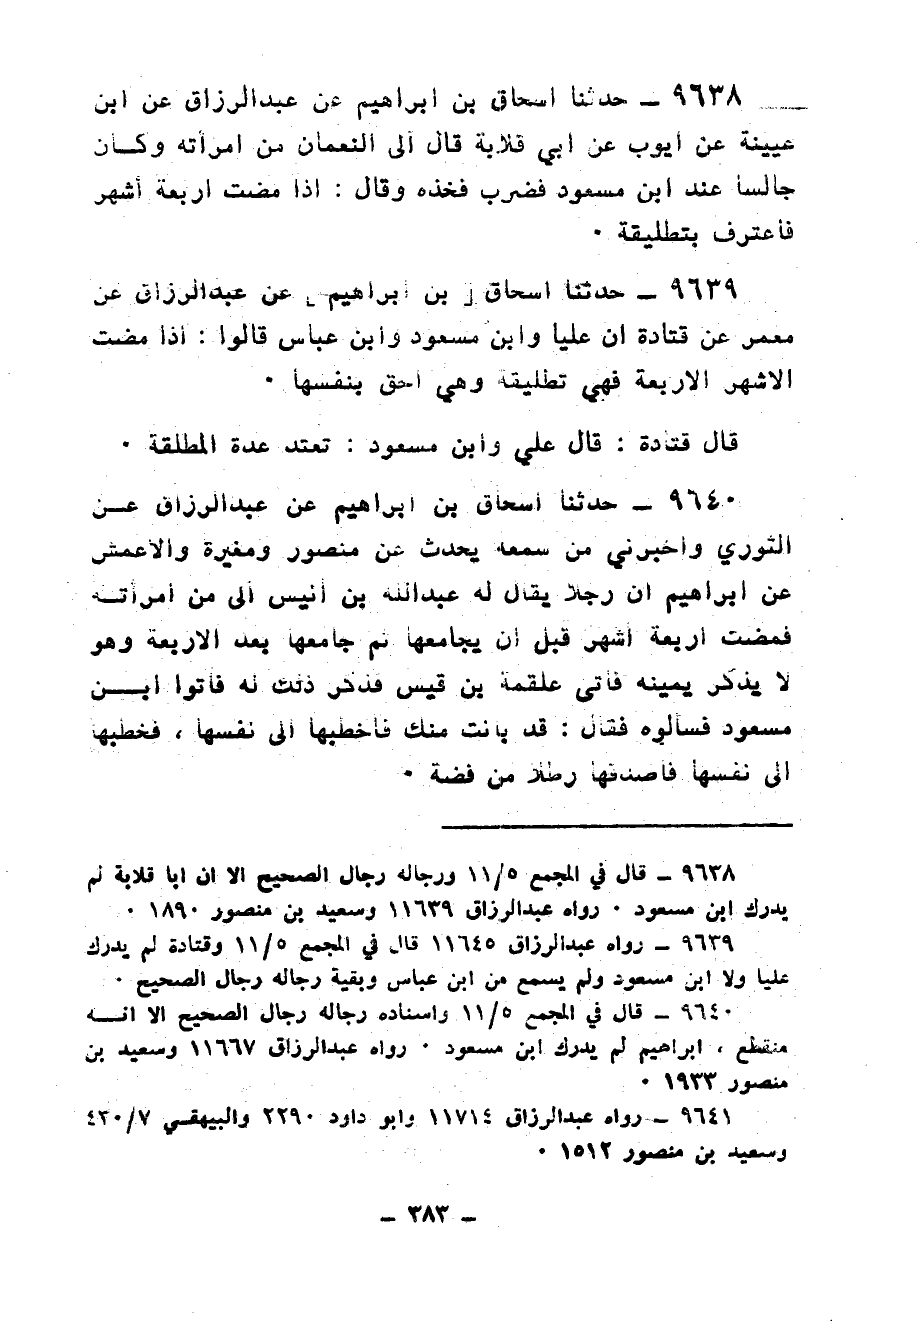 ٩٦٣٨ ــ حدثنا اسحاق بن ابراهيم عن عبدالرزاق عن ابن
عيينة عن أيوب عن ابي قلابة قال آلى النعمان من امرأته وكـــان
جالسا عند ابن مسعود فضرب فخذه وقال : اذا مضت اربعة أشهر
فاعترف بتطليقة ٠
٩٦٣٩ ــ حدثنا اسحاق [ بن ابراهيم ] عن عبدالرزاق عن
معمر عن قتادة ان عليا وابن مسعود وابن عباس قالوا : اذا مضت
الاشهر الاربعة فهي تطليقة وهي احق بنفسها ٠
قال قتادة : قال علي وابن مسعود : تعتد عدة المطلقة ٠
٩٦٤٠ ــ حدثنا اسحاق بن ابراهيم عن عبدالرزاق عـــن
الثوري وأخبرني من سمعه يحدث عن منصور ومغيرة والاعمش
عن ابراهيم ان رجلا يقال له عبدالله بن أنيس آلى من امرأتـــه
فمضت اربعة أشهر قبل أن يجامعها ثم جامعها بعد الاربعة وهو
لا يذكر يمينه فأتى علقمة بن قيس فذكر ذلك له فأتوا ابـــن
مسعود فسألوه فقال : قد بانت منك فاخطبها الى نفسها ، فخطبها
الى نفسها فأصدقها رطلا من فضة ٠
٩٦٣٨ ــ قال في المجمع ١١/٥ ورجاله رجال الصحيح الا ان ابا قلابة لم
يدرك ابن مسعود ٠ رواه عبدالرزاق ١١٦٣٩ وسعيد بن منصور ١٨٩٠ ٠
٩٦٣٩ ــ رواه عبدالرزاق ١١٦٤٥ قال في المجمع ١١/٥ وقتادة لم يدرك
عليا ولا ابن مسعود ولم يسمع من ابن عباس وبقية رجاله رجال الصحيح ٠
٩٦٤٠ ــ قال في المجمع ١١/٥ واسناده رجاله رجال الصحيح الا انـــه
منقطع ، ابراهيم لم يدرك ابن مسعود ٠ رواه عبدالرزاق ١١٦٦٧ وسعيد بن
منصور ١٩٣٣ ٠
٩٦٤١ ــ رواه عبدالرزاق ١١٧١٤ وابو داود ٢٢٩٠ والبيهقـي ٤٣٠/٧
وسعيد بن منصور ١٥١٢ ٠
ــ ٣٨٣ ــ